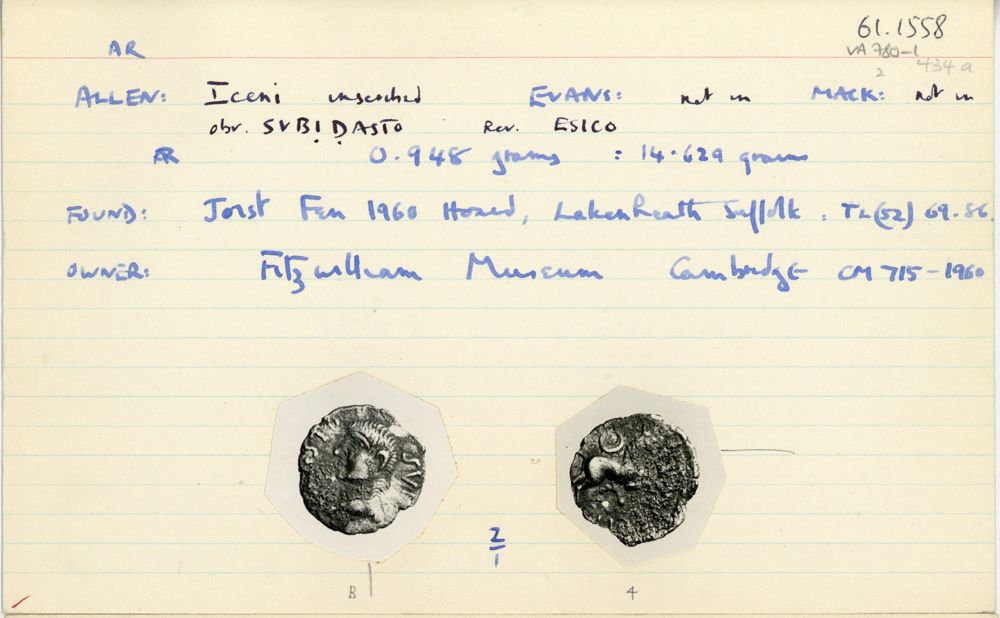 61.1558
AR
VA 780-1
2
434a
ALLEN: Iceni inscribed EVANS: not in MACK: not in
obv. SVBỊḌASTO Rev. ESICO
AR 0.948 grams : 14.629 grains
FOUND: Joist Fen 1960 Hoard, Lakenheath Suffolk. TL(52) 69.86.
OWNER: Fitzwilliam Museum Cambridge CM 715-1960
2
1
B
4